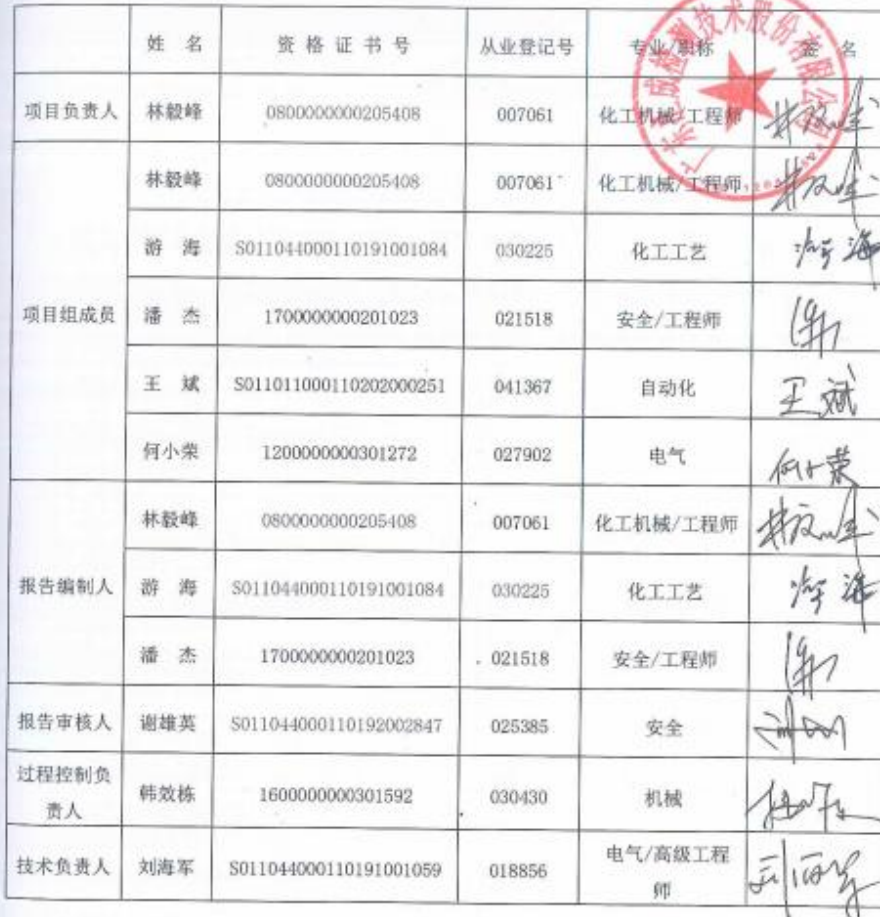 姓 名 资格证书号 从业登记号 专业/职称 签 名
项目负责人 林毅峰 0800000000205408 007061 化工机械/工程师
林毅峰 0800000000205408 007061 化工机械/工程师
游 海 S011044000110191001084 030225 化工工艺 游海
项目组成员 潘 杰 1700000000201023 021518 安全/工程师
王 斌 S011011000110202000251 041367 自动化 王斌
何小荣 1200000000301272 027902 电气 何小荣
林毅峰 0800000000205408 007061 化工机械/工程师
报告编制人 游 海 S011044000110191001084 030225 化工工艺 游海
潘 杰 1700000000201023 021518 安全/工程师
报告审核人 谢雄英 S011044000110192002847 025385 安全
过程控制负
责人 韩效栋 1600000000301592 030430 机械
技术负责人 刘海军 S011044000110191001059 018856 电气/高级工程
师 刘海军